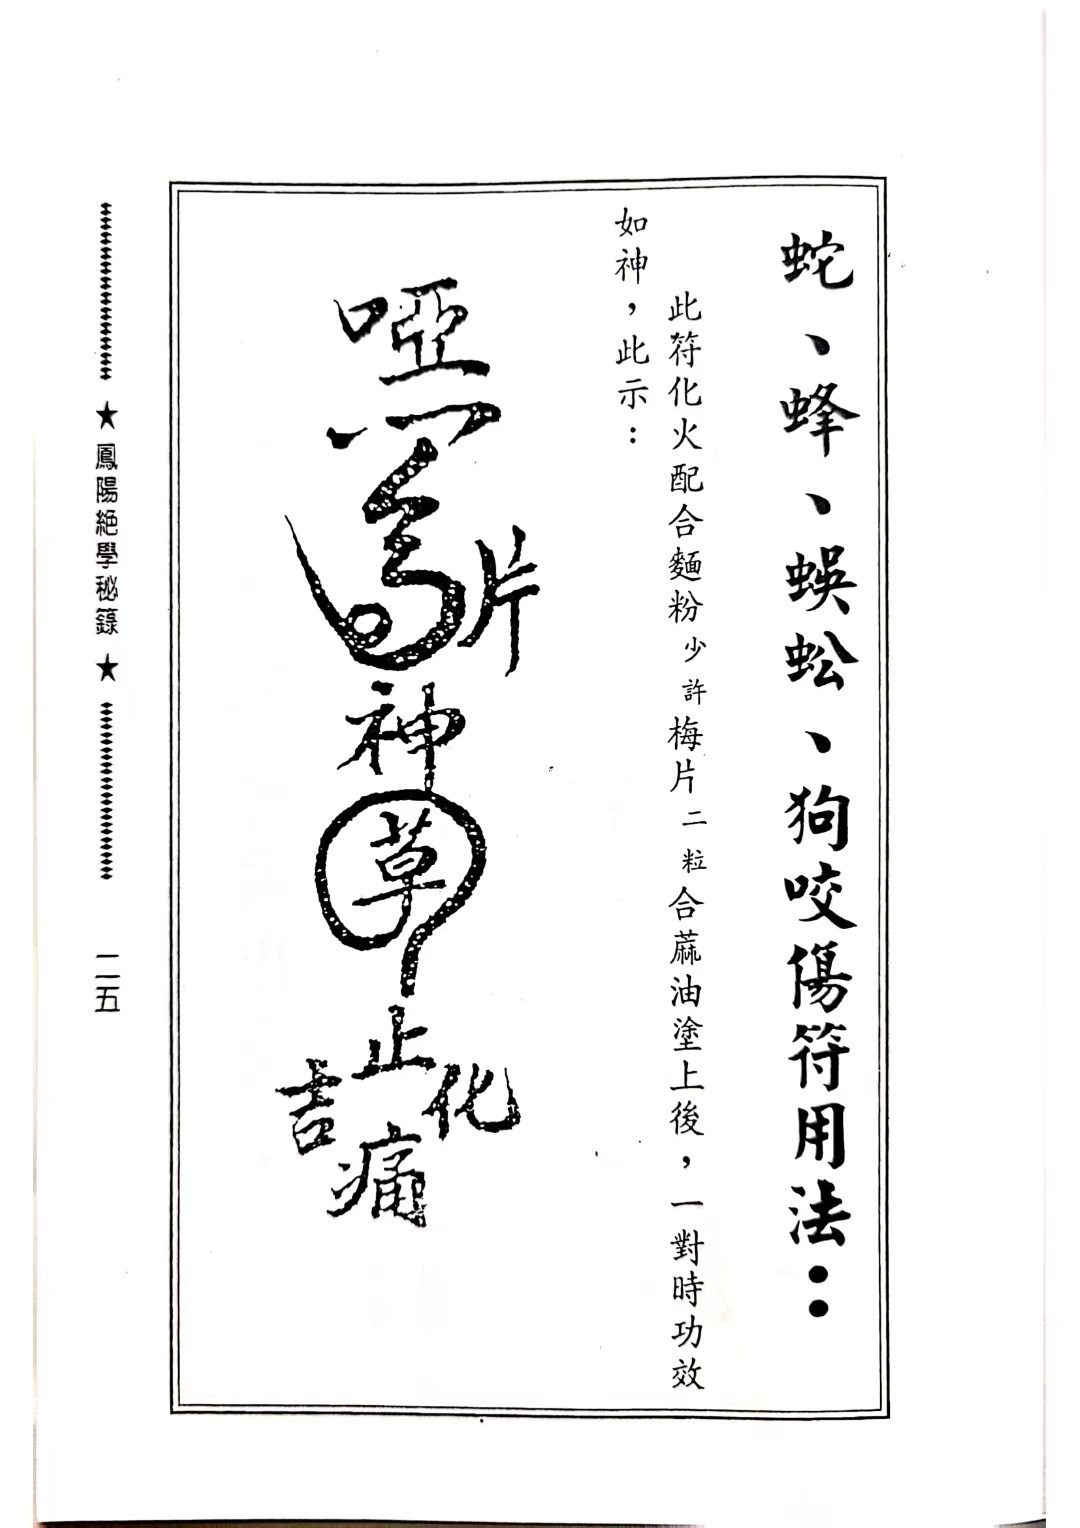 蛇、蜂、蜈蚣、狗咬傷符用法：
此符化火配合麵粉少許梅片二粒合蔴油塗上後，一對時功效
如神，此示：
啞
片
神
草
止
化
吉
痛
★鳳陽絕學秘籙★
二五